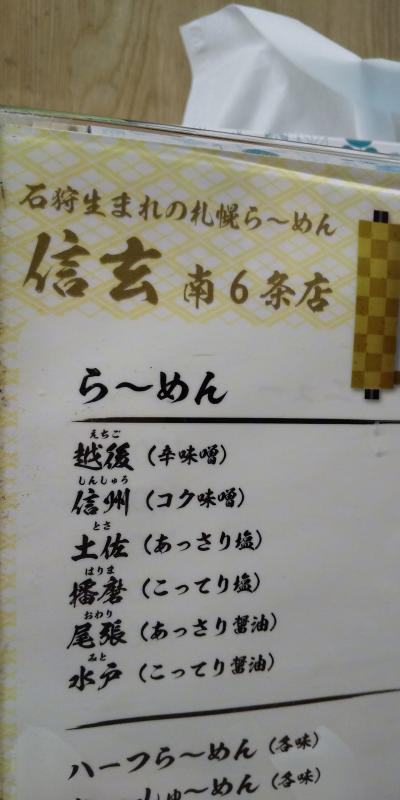 石狩生まれの札幌ら〜めん
信玄 南6条店
ら〜めん
えちご
越後（辛味噌）
しんしゅう
信州（コク味噌）
とさ
土佐（あっさり塩）
はりま
播磨（こってり塩）
おわり
尾張（あっさり醤油）
みと
水戸（こってり醤油）
ハーフら〜めん（各味）
しゅ〜めん（各味）